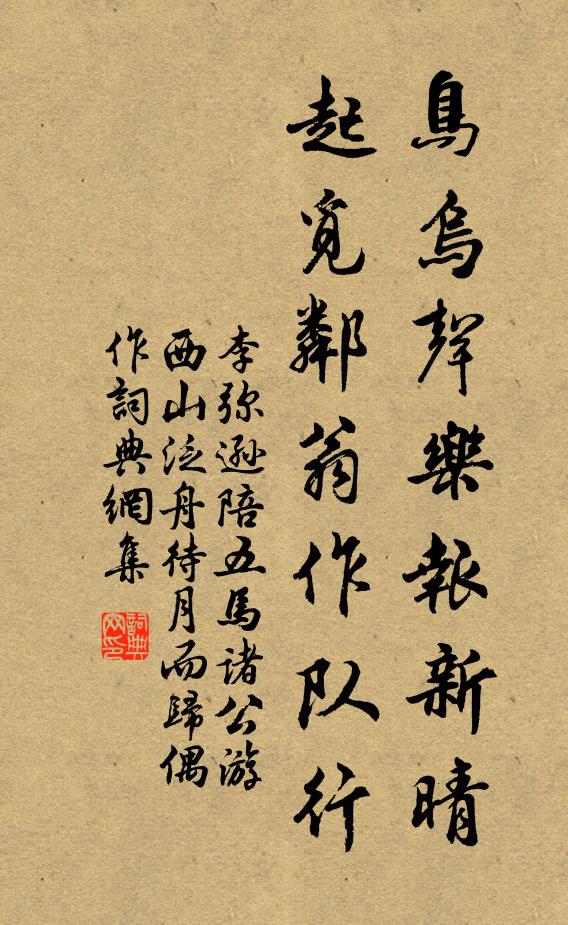 鳥烏聲樂報新晴
起覓鄰翁作队行
李弥遜陪五馬諸公游
西山泛舟待月而歸偶
作詞典網集
詞典網印